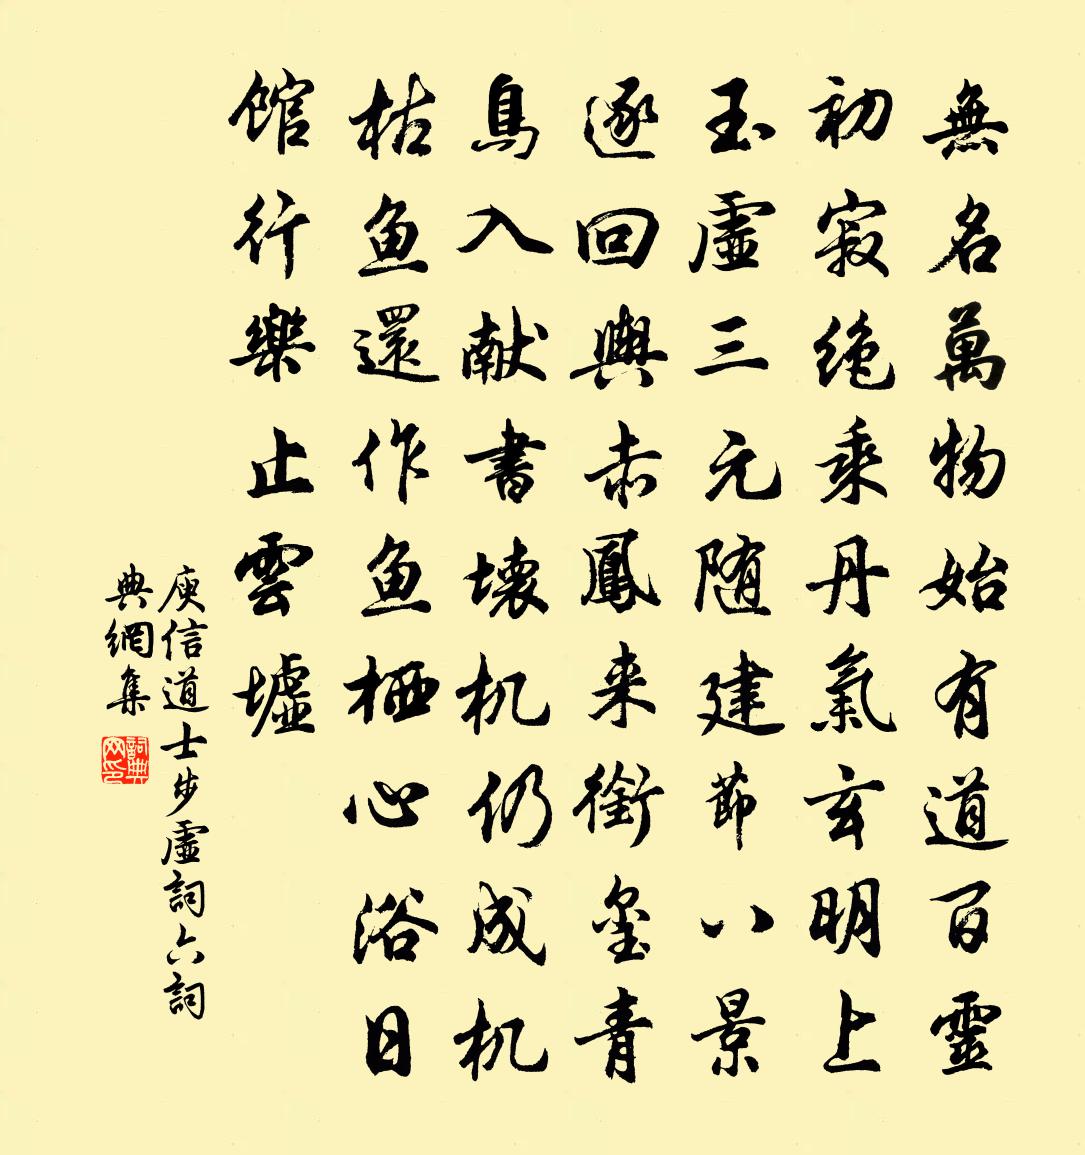 無名萬物始有道百靈
初寂絶乘丹氣玄明上
玉虛三元随建節八景
逐回輿赤鳳来銜璽青
鳥入献書壊机仍成机
枯魚還作魚栖心浴日
館行樂止雲墟
庾信道士步虛詞六詞
典網集
詞典網印